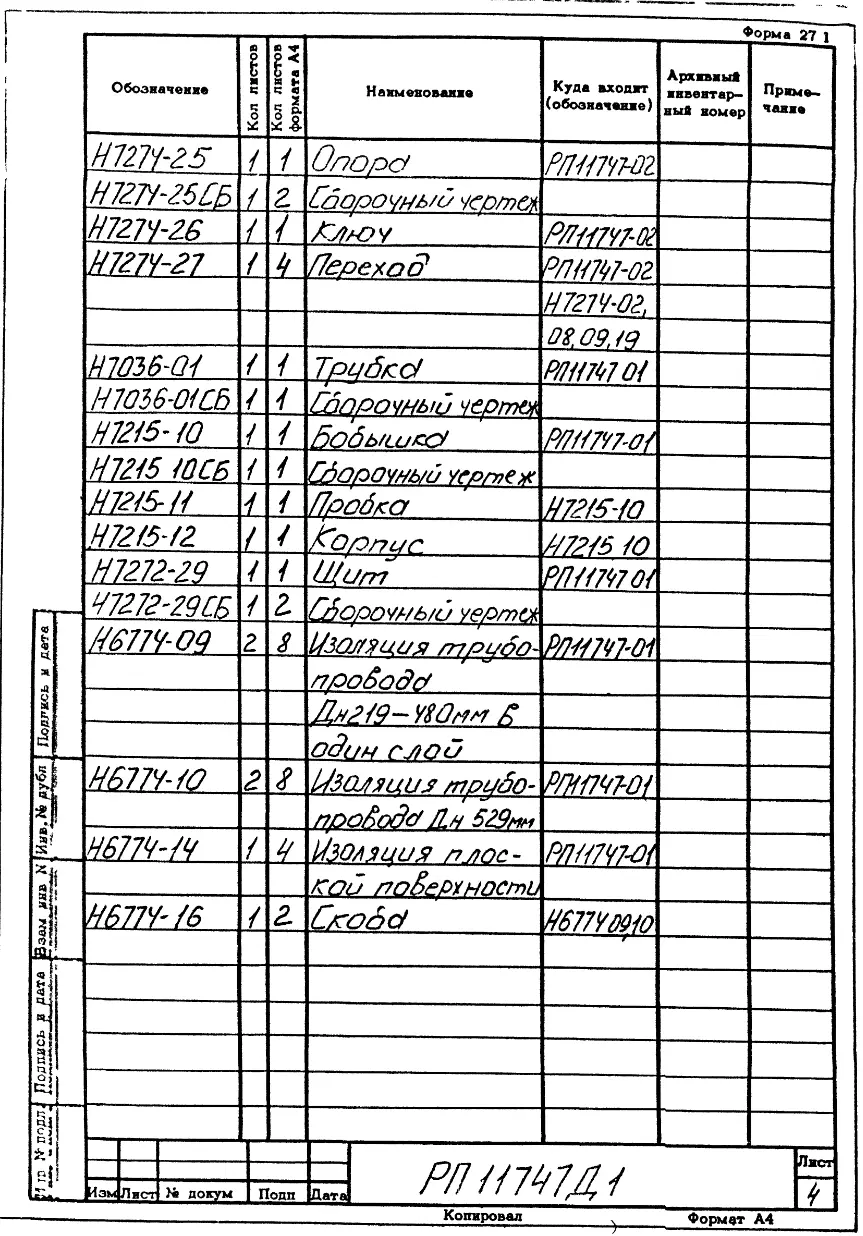 Форма 27 1
Обозначение Кол листов Кол листов формата А4 Наименование Куда входит (обозначение) Архивный инвентар- ный номер Приме- чание
Н7274-25 1 1 Опора РП11747-02
Н7274-25СБ 1 2 Сборочный чертеж
Н7274-26 1 1 Ключ РП11747-02
Н7274-27 1 4 Переход РП11747-02
Н7274-02,
08,09,19
Н7036-01 1 1 Трубка РП11747 01
Н7036-01СБ 1 1 Сборочный чертеж
Н7215-10 1 1 Бобышка РП11747-01
Н7215 10СБ 1 1 Сборочный чертеж
Н7215-11 1 1 Пробка Н7215-10
Н7215-12 1 1 Корпус Н7215 10
Н7272-29 1 1 Щит РП11747 01
Ч7272-29СБ 1 2 Сборочный чертеж
Н6774-09 2 8 Изоляция трубо- РП11747-01
провода
Дн219-480мм в
один слой
Н6774-10 2 8 Изоляция трубо- РП11747-01
провода Дн 529мм
Н6774-14 1 4 Изоляция плос- РП11747-01
кой поверхности
Н6774-16 1 2 Скоба Н6774 09,10
Подпись и дата
Инв.№ дубл
Взам инв N
Подпись и дата
№ подл.
Изм Лист № докум Подп Дата
РП 11747Д1
Лист
4
Копировал Формат А4